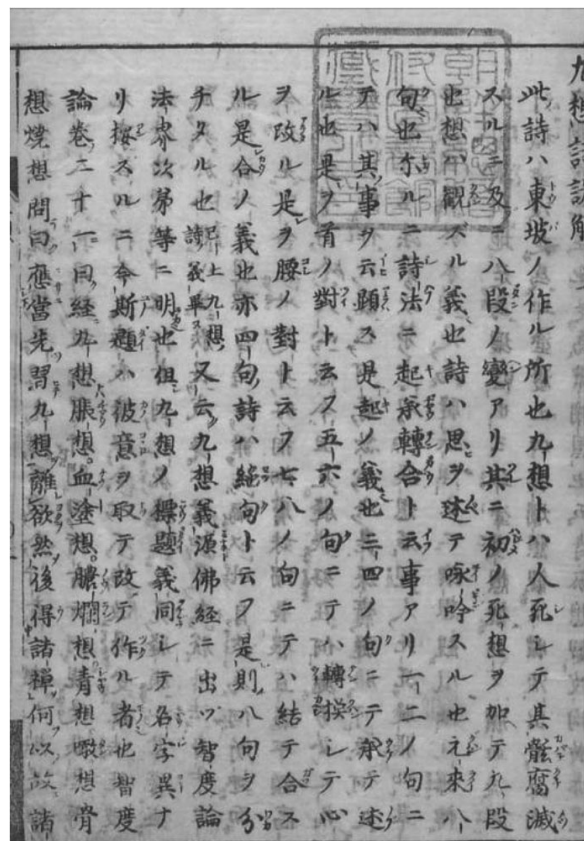 九想詩諺解
此詩ハ東坡ノ作ル所也九想トハ人死シテ其骸腐滅
スルニ及ニ八段ノ變アリ其ニ初ノ死想ヲ加テ九段
也想ハ觀ズル義也詩ハ思ヲ述テ咏吟スル也元來八
句也尓ルニ詩法ニ起承轉合ト云事アリ一二ノ句ニ
テハ其事ヲ云顕ス是起ノ義也三四ノ句ニテ承テ述
ル也是ヲ首ノ對ト云フ五六ノ句ニテハ轉換シテ心
ヲ改ル是ヲ腰ノ對ト云フ七八ノ句ニテハ結テ合ス
ル是合ノ義也亦四句ノ詩ハ絶句ト云フ是則八句ヲ分
チタル也已上九想詩ノ義畢又云九想義源佛經ニ出ツ智度論
法界次第等ニ明也但九想ノ標題義同シテ名字異ナ
リ按スルニ今斯題ハ彼意ヲ取テ改テ作ル者也智度
論巻二十一曰経九想脹想血塗想膿爛想青想噉想骨
想燒想問曰應當先習九想離欲然後得諸禅何以故諸
朝鮮總督
府圖書館
藏書之印